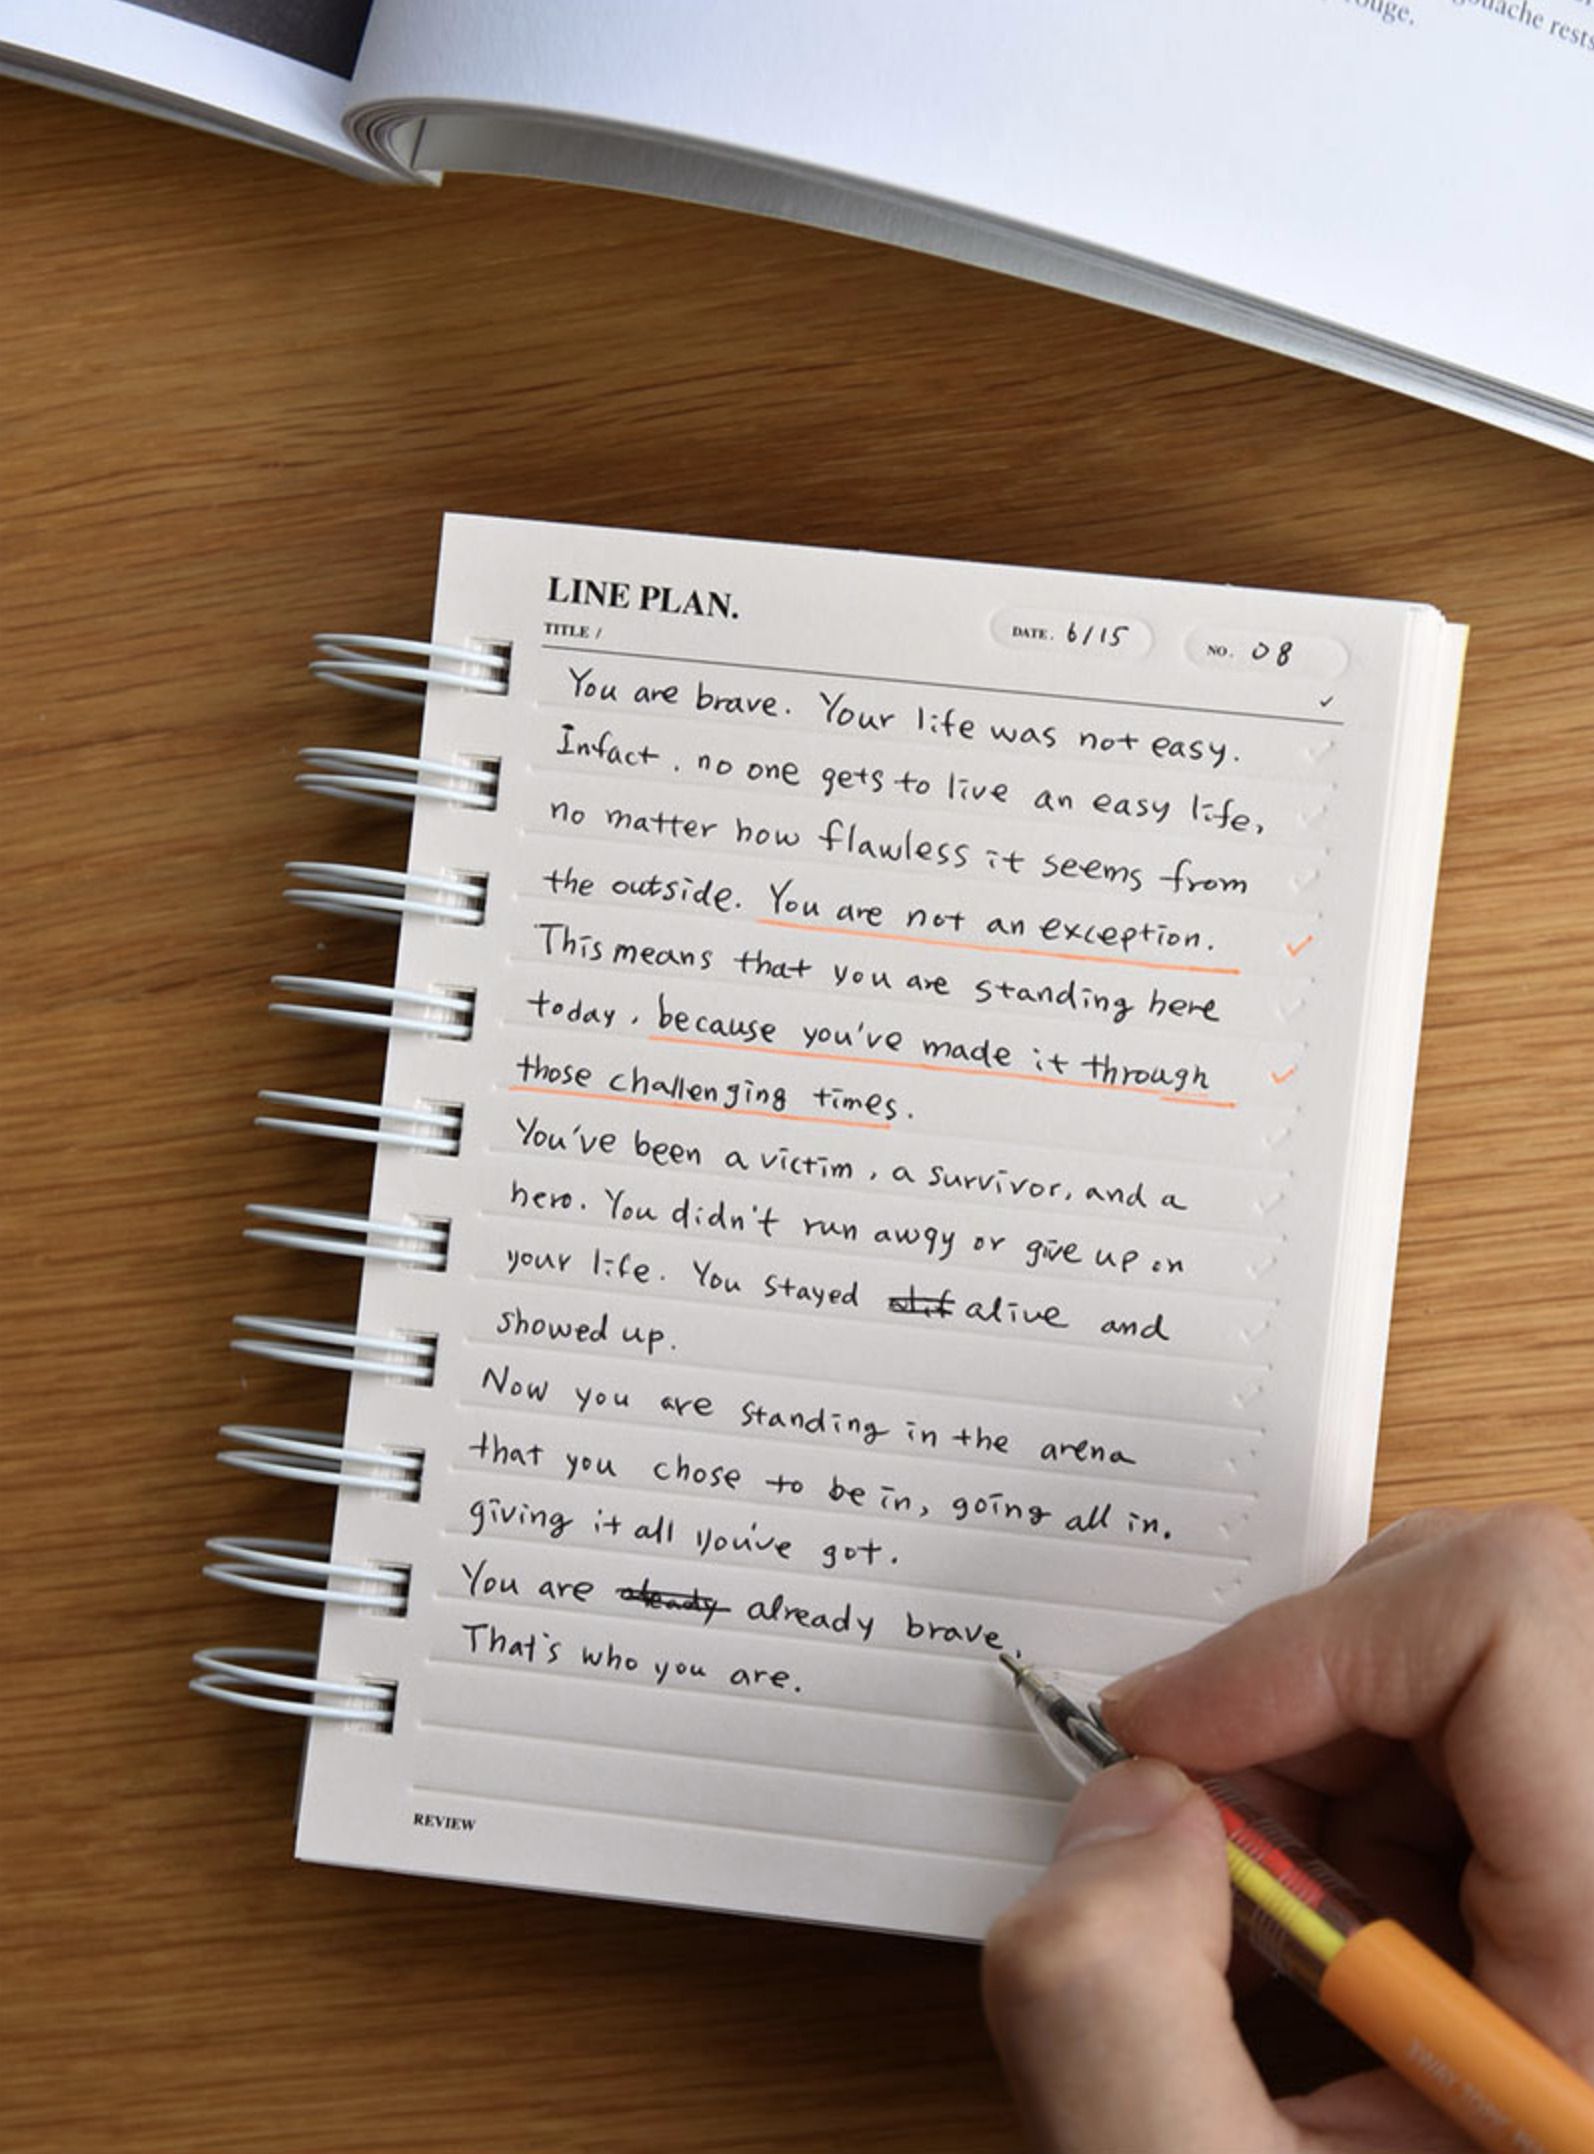 gouache rests
rouge.
LINE PLAN.
TITLE /
DATE. 6/15
NO. 08
You are brave. Your life was not easy.
Infact, no one gets to live an easy life,
no matter how flawless it seems from
the outside. You are not an exception.
This means that you are standing here
today, because you've made it through
those challenging times.
You've been a victim, a survivor, and a
hero. You didn't run away or give up on
your life. You stayed alive and
showed up.
Now you are standing in the arena
that you chose to be in, going all in.
giving it all you've got.
You are already brave.
That's who you are.
REVIEW